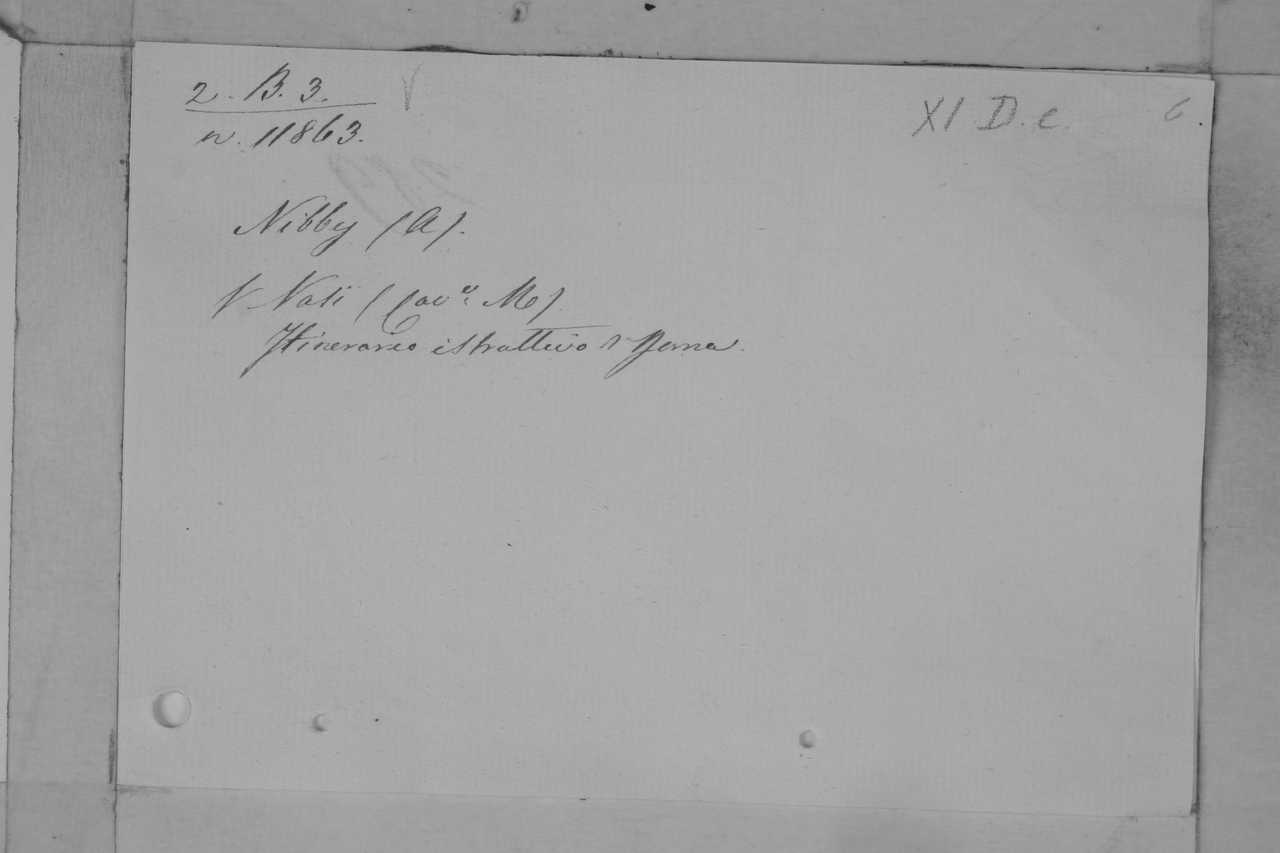 2. B. 3. XI D. c. 6.
n. 11863.
Nibby (A).
V Vasi (Cav.r M)
Itinerario istruttivo di Roma.